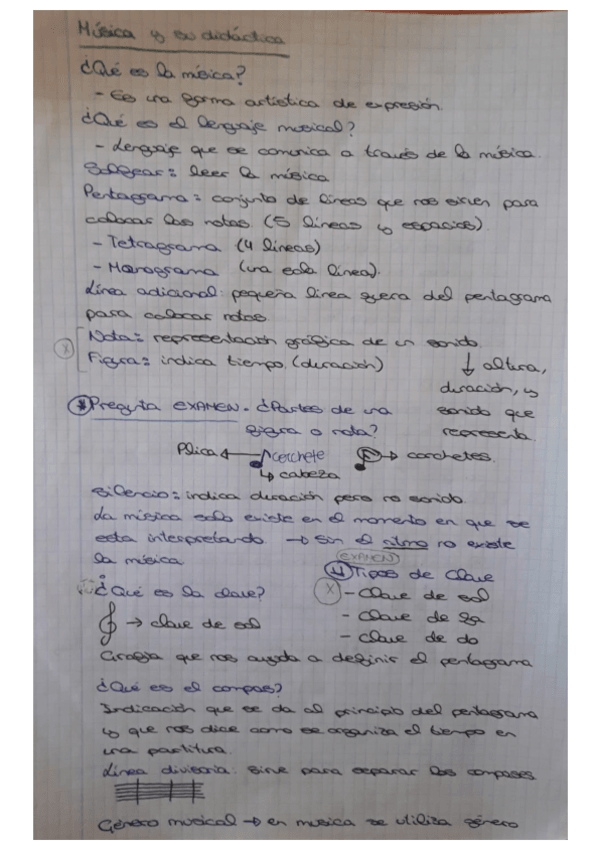 Música y su didáctica
¿Qué es la música?
- Es una forma artística de expresión.
¿Qué es el lenguaje musical?
- Lenguaje que se comunica a través de la música.
Solfear = leer la música
Pentagrama = conjunto de líneas que nos sirven para
colocar las notas (5 líneas y espacios).
- Tetragrama (4 líneas)
- Monograma (una sola línea).
Línea adicional: pequeña línea fuera del pentagrama
para colocar notas
Nota = representación gráfica de un sonido.
x Figura = indica tiempo (duración)
↓ altura,
duración, y
sonido que
representa.
* Pregunta EXAMEN - ¿Partes de una
figura o nota?
Plica ← cerchete
↳ cabeza
→ corchetes.
Silencio = indica duración pero no sonido
La música solo existe en el momento en que se
esta interpretando → Sin el ritmo no existe
la música
(EXAMEN)
Tipos de Clave
x - Clave de sol
- Clave de fa
- Clave de do
¿Qué es la clave?
→ clave de sol
Grafía que nos ayuda a definir el pentagrama
¿Qué es el compas?
Indicación que se da al principio del pentagrama
y que nos dice como se organiza el tiempo en
una partitura.
Línea divisoria: sirve para separar los compases
Género musical → en musica se utiliza género